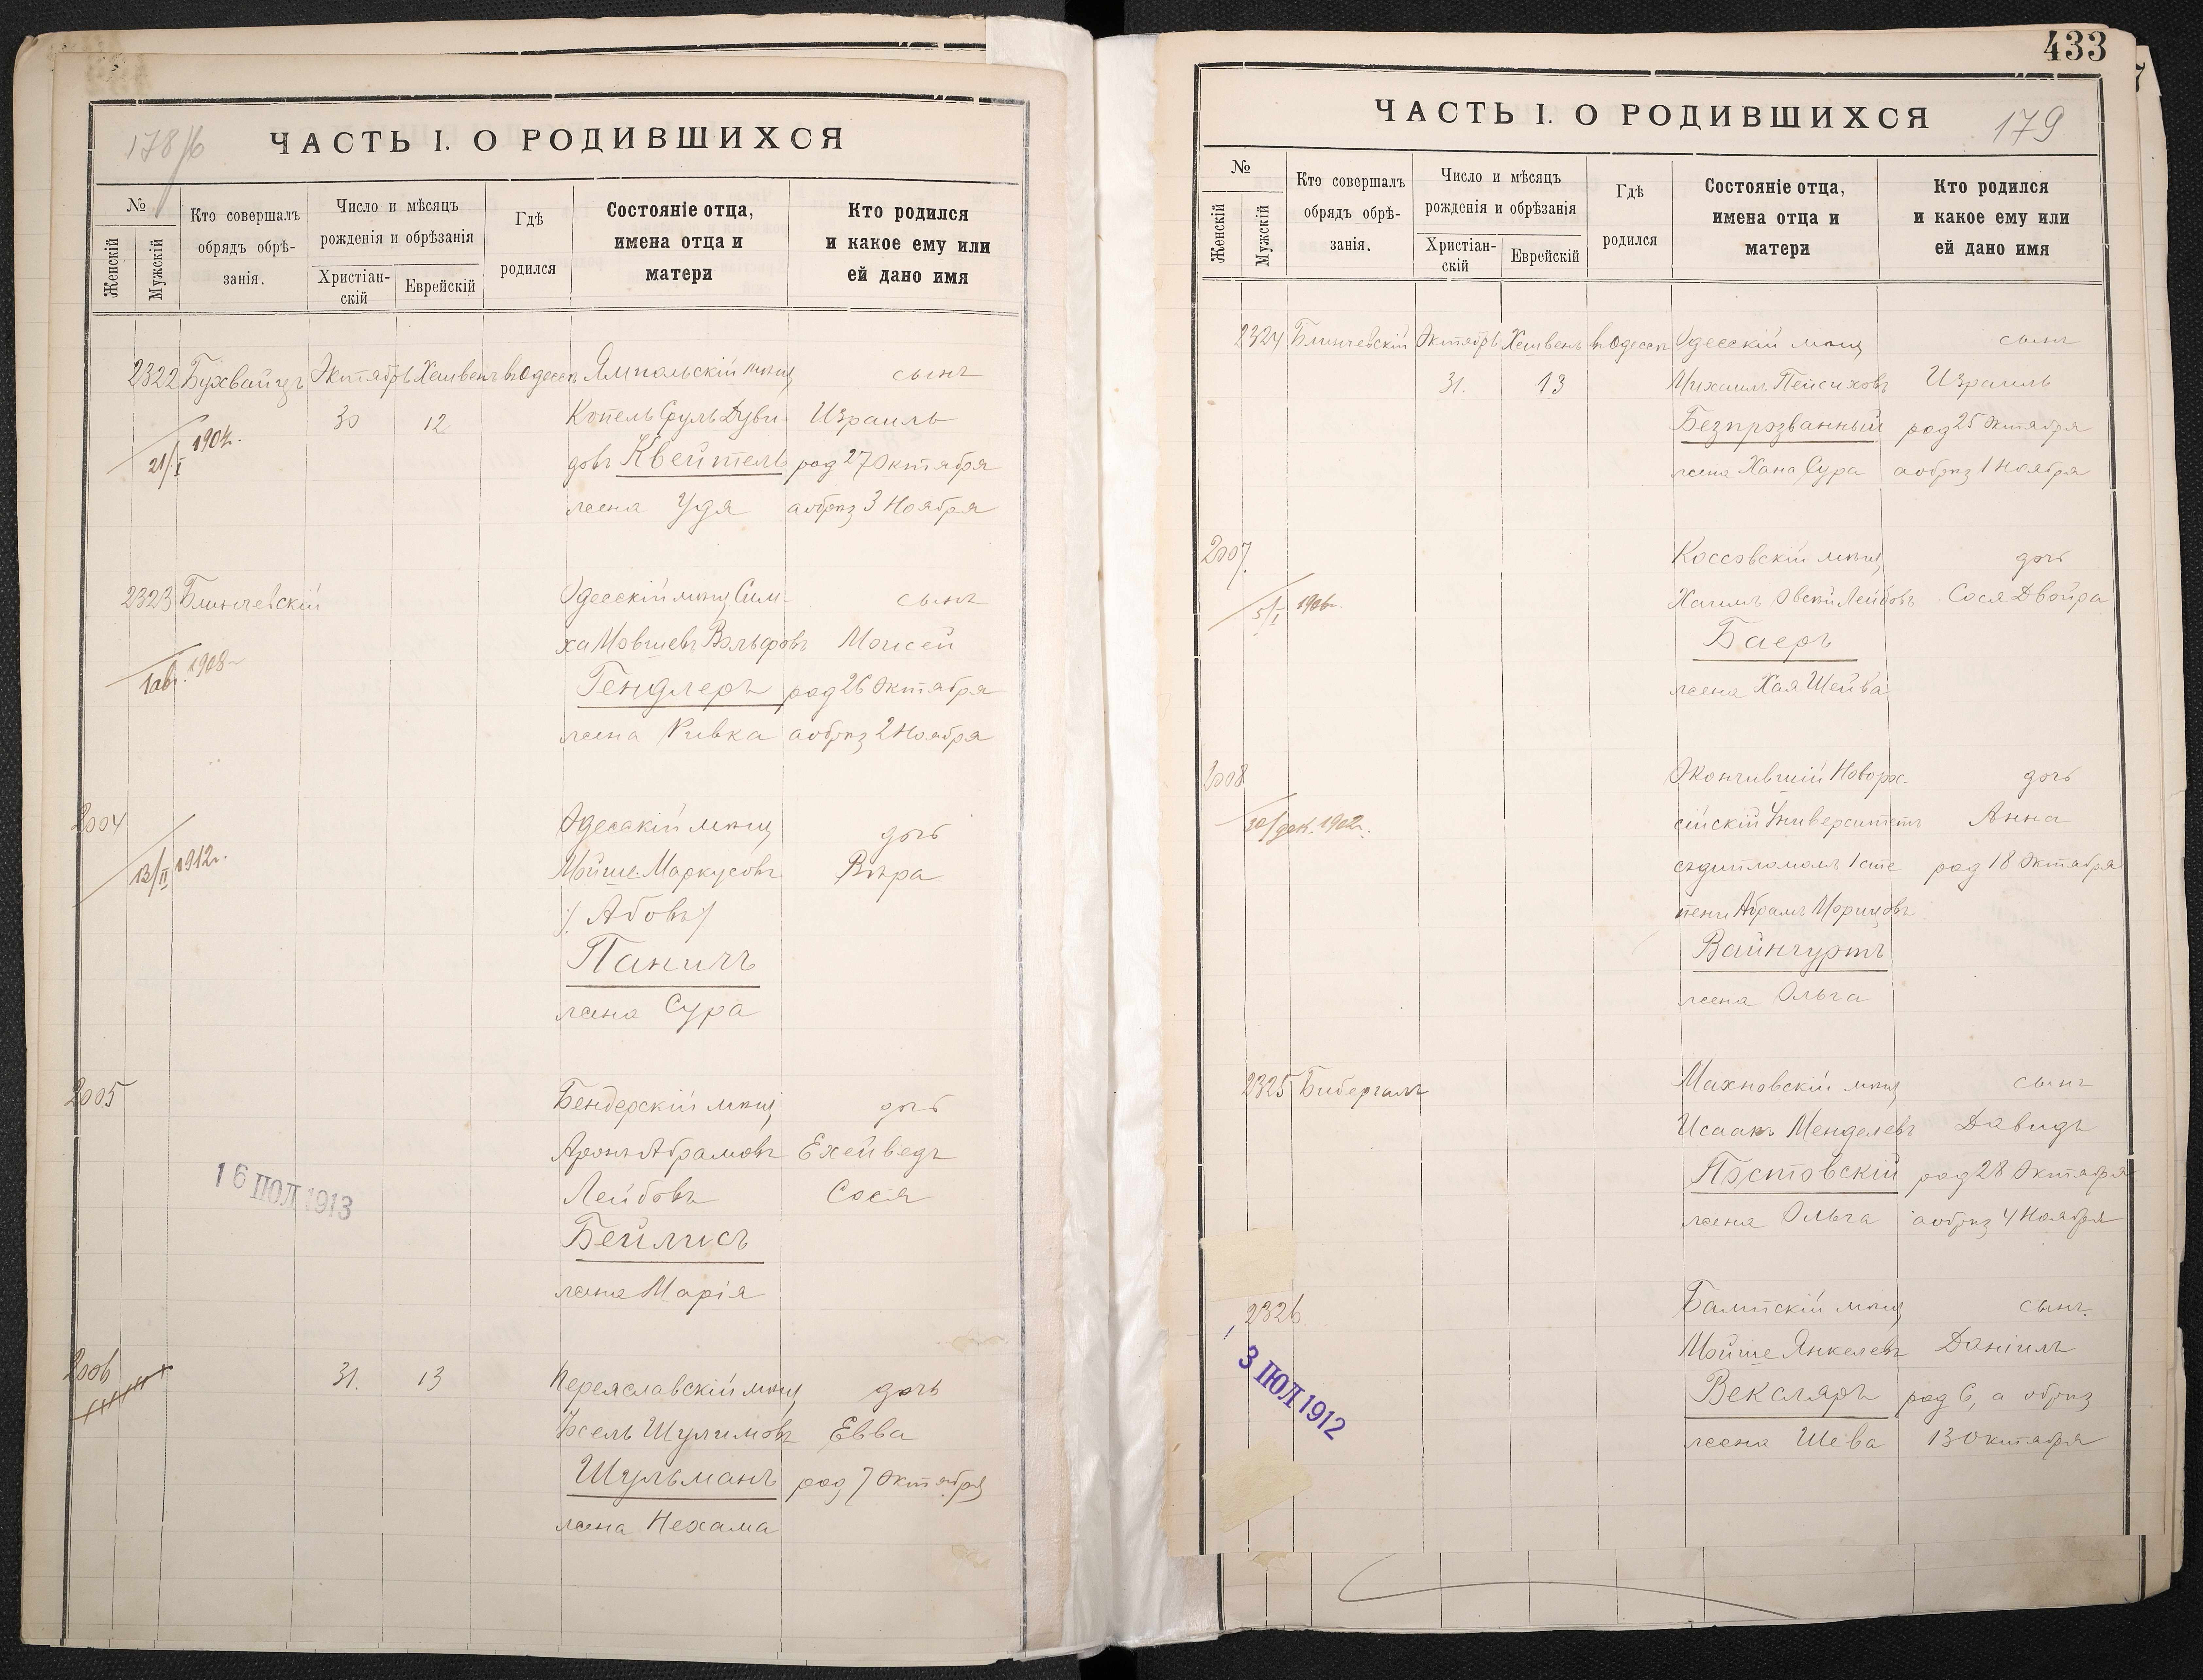 178/б
ЧАСТЬ I. О РОДИВШИХСЯ
№
Женскій
Мужскій
Кто совершалъ
обрядъ обрѣ-
занія.
Число и мѣсяцъ
рожденія и обрѣзанія
Христіан-
скій
Еврейскій
Гдѣ
родился
Состояніе отца,
имена отца и
матери
Кто родился
и какое ему или
ей дано имя
2322 Бухвайцъ Октябрь Хешвенъ въ Одессѣ Ямпольскій мѣщ сынъ
30 12 Копель Сруль Дуви- Израиль
21/I 1904г.
довъ Квейтель род 27 Октября
жена Удя а обрѣз 3 Ноября
2323 Блинчевскій Одесскій мѣщ Сим- сынъ
ха Мовшевъ Вольфовъ Моисей
1908
Гендлеръ род 26 Октября
жена Ривка а обрѣз 2 Ноября
2004 Одесскій мѣщ дочь
13/II 1912г.
Мойше Маркусовъ Вѣра
/Абовъ/
Паничъ
жена Сура
2005 Бендерскій мѣщ дочь
Аронъ Абрамовъ Ехейведъ
Лейбовъ Сося
16 ІЮЛ 1913
Бейлисъ
жена Марія
2006 31. 13 Переяславскій мѣщ дочь
Іосель Шулимовъ Евва
Шульманъ род 7 Октября
жена Нехама
433
179
ЧАСТЬ I. О РОДИВШИХСЯ
№
Женскій
Мужскій
Кто совершалъ
обрядъ обрѣ-
занія.
Число и мѣсяцъ
рожденія и обрѣзанія
Христіан-
скій
Еврейскій
Гдѣ
родился
Состояніе отца,
имена отца и
матери
Кто родился
и какое ему или
ей дано имя
2324 Блинчевскій Октябрь Хешвенъ въ Одессѣ Одесскій мѣщ сынъ
31. 13 Михаилъ Пейсиховъ Израиль
Безпрозванный род 25 Октября
жена Хана Сура а обрѣз 1 Ноября
2007 Коссовскій мѣщ дочь
5/I 1906г.
Хаимъ Овсѣй Лейбовъ Сося Двойра
Баеръ
жена Хая Шейва
2008 Окончившій Новорос- дочь
30/дек. 1902г.
сійскій Университетъ Анна
съ дипломомъ 1 сте род 18 Октября
пени Абрамъ Морицовъ
Вайнгуртъ
жена Ольга
2325 Бибергалъ Махновскій мѣщ сынъ
Исаакъ Менделевъ Давидъ
Постовскій род 28 Октября
жена Ольга а обрѣз 4 Ноября
2326 Балтскій мѣщ сынъ.
3 ІЮЛ 1912
Мойше Янкелевъ Даніилъ
Векслеръ род 6, а обрѣз
жена Шева 13 Октября